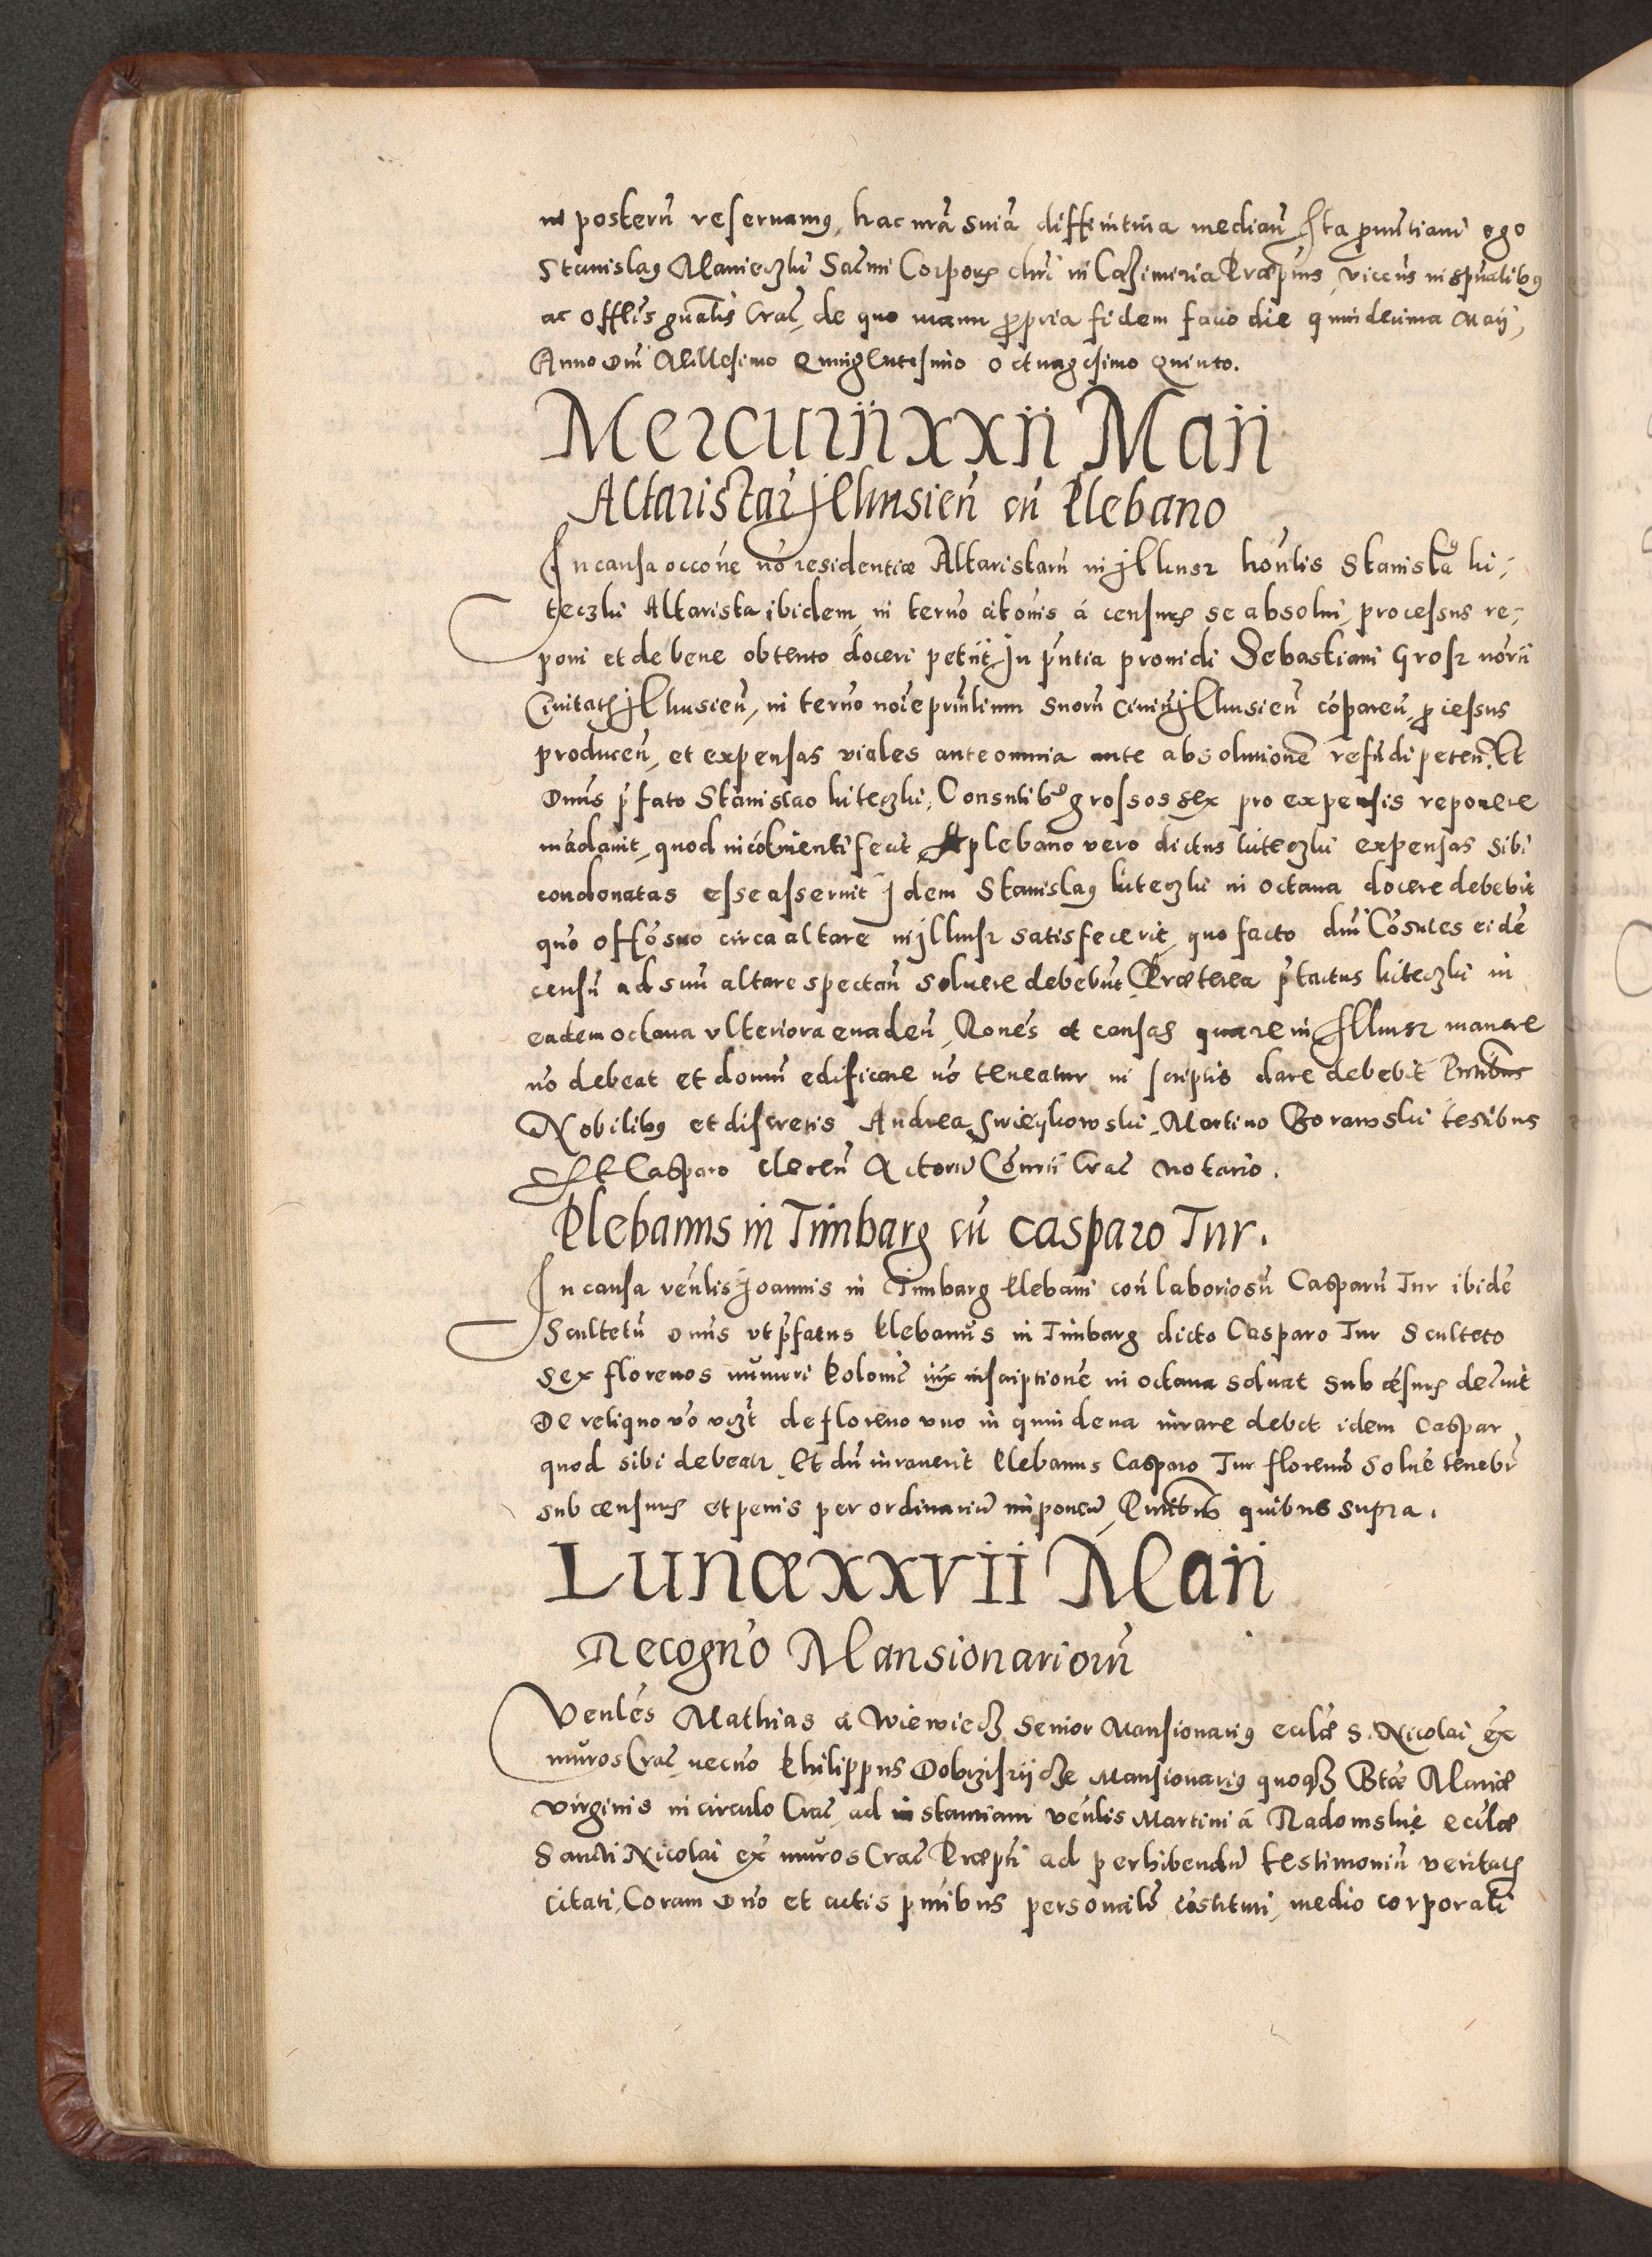 in posterũ reseruamus, hac nr̃a sñia diffinitiua median̄ Ita pronũtiam̃ ego
Stanislaus Manieczki Sacr̃mi Corporis chr̃i in Casimiria Præpt̃us, viccũs in spũalibus
ac Offlis gñalis Crac̃, de quo manu propria fidem facio die quindecima Maij,
Anno Dñi Millesimo Quingentesimo octuagesimo Quinto.
Mercurii xxii Maii
Altaristar̃ Ilkusien̄ cũ Plebano
In causa occõne nõ residentiæ Altaristarũ in Ilkusz honl̃is Stanislaus Li-
teczki Altarista ibidem, in terño citõnis á censuris se absolui, processus re-
poni et de bene obtento doceri petiit, In pñtia prouidi Sebastiani Grosz nõrii
Ciuitatis Ilkusien̄, in terño noĩe principalium suorũ Ciuiũ Ilkusien̄ cõparen̄, processus
producen̄, et expensas viales ante omnia ante absolutionẽ refũdi peten̄. Et
Dñus p̃fato Stanislao Liteczki, Consulibus grossos sex pro expensis reponere
mãdauit, quod in cõtinenti fecit A plebano vero dictus Liteczki expensas sibi
condonatas esse asseruit Idem Stanislaus Liteczki in octaua docere debebit
quõ offõ suo circa altare in Ilkusz satisfecerit, quo facto dñi Cõsules eidẽ
censũ ad suũ altare spectan̄ soluere debebũt, Præterea p̃tactus Liteczki in
eadem octaua vlteriora euaden̄, Rones et causas quare in Ilkusz manere
nõ debeat et domũ edificare nõ teneatur in scriptis dare debebit Pñtibus
Nobilibus et discretis Andrea Swięykowski, Martino Borawski testibus
Et Casparo cleren̄ Actorũ Cõnrii Crac̃ notario.
Plebanus in Timbarg cũ Casparo Tur.
In causa venl̃is Joannis in Timbarg Plebani con̄ laboriosũ Casparũ Tur ibidẽ
Scultetũ Dñus vt p̃fatus Plebanũs in Timbarg dicto Casparo Tur Sculteto
sex florenos nũmeri Poloniẽ iux̃ inscriptionẽ in octaua soluat sub cẽsuris decreuit
De reliquo võ vczt̃ de floreno vno in quindena iurare debet idem Caspar,
quod sibi debeatr. Et dũ iurauerit Plebanus Casparo Tur florenũ soluẽ tenebr̃
sub censuris et penis per ordinariũ imponen̄, Pñtibus quibus supra.
Lunæ xxvii Maii
Recogno Mansionariorũ
Venl̃es Mathias á Wiewiecz Senior Mansionarius eccl̃æ S. Nicolai ex̃
muros Crac̃ necnõ Philippus Dobrzisziicze Mansionarius quoqz Btæ Mariæ
virginis in circulo Crac̃, ad instantiam venl̃is Martini á Radomskie eccl̃æ
Sancti Nicolai ex̃ muros Crac̃ Præpt̃i ad perhibendũ testimoniũ veritatis
citati, Coram Dño et actis pñtibus personalr̃ cõstituti, medio corporali